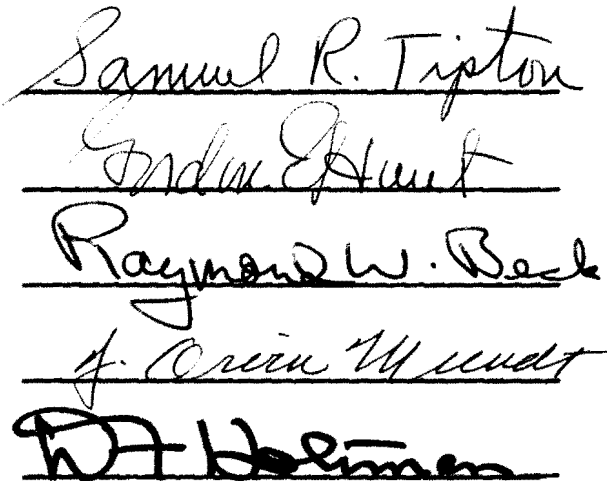 Samuel R. Tipton
Gordon E Hunt
Raymond W. Beck
J. Orvin Mundt
D F Holtman